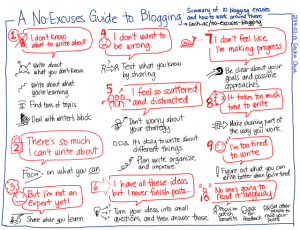 A No-Excuses Guide to Blogging
Summary of 10 blogging excuses
and how to work around them
→ sach.ac/no-excuses-blogging
1 I don't know
what to write about
Write about
what you don't know
Write about what
you're learning
Find tons of topics
Deal with writer's block
2 There's so much
I can't write about.
Focus on what you can
3 But I'm not an
expert yet!
Share while you learn
4 I don't want to
be wrong.
Test what you know
by sharing
5 I feel so scattered
and distracted
Don't worry about
your strategy.
It's okay to write about
different things.
Plan, write, organize,
and improve.
6 I have all these ideas
but I never finish posts.
Turn your ideas into small
questions, and then answer those.
7 I don't feel like
I'm making progress
Be clear about your
goals and possible
approaches.
8 It takes too much
time to write
Make sharing part of
the way you work.
9 I'm too tired
to write
Figure out what you can
write better when you're tired
10 No one's going to
read it anyway
Focus on
selfish
benefits
Check for
feedback
Get other
people to
read your posts